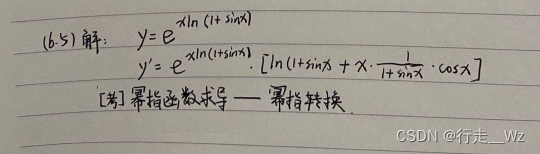 (6.5) 解: y=e^{xln(1+sinx)}
y'=e^{xln(1+sinx)}·[ln(1+sinx + x·\frac{1}{1+sinx}·cosx]
[考] 幂指函数求导 — 幂指转换.
CSDN @行走__Wz